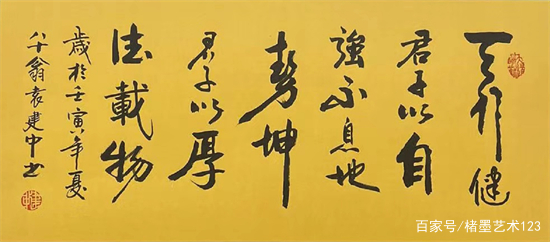 天行健
君子以自
強不息地
勢坤
君子以厚
德載物
歲於壬寅年夏
八十翁袁建中书
百家号/楮墨艺术123